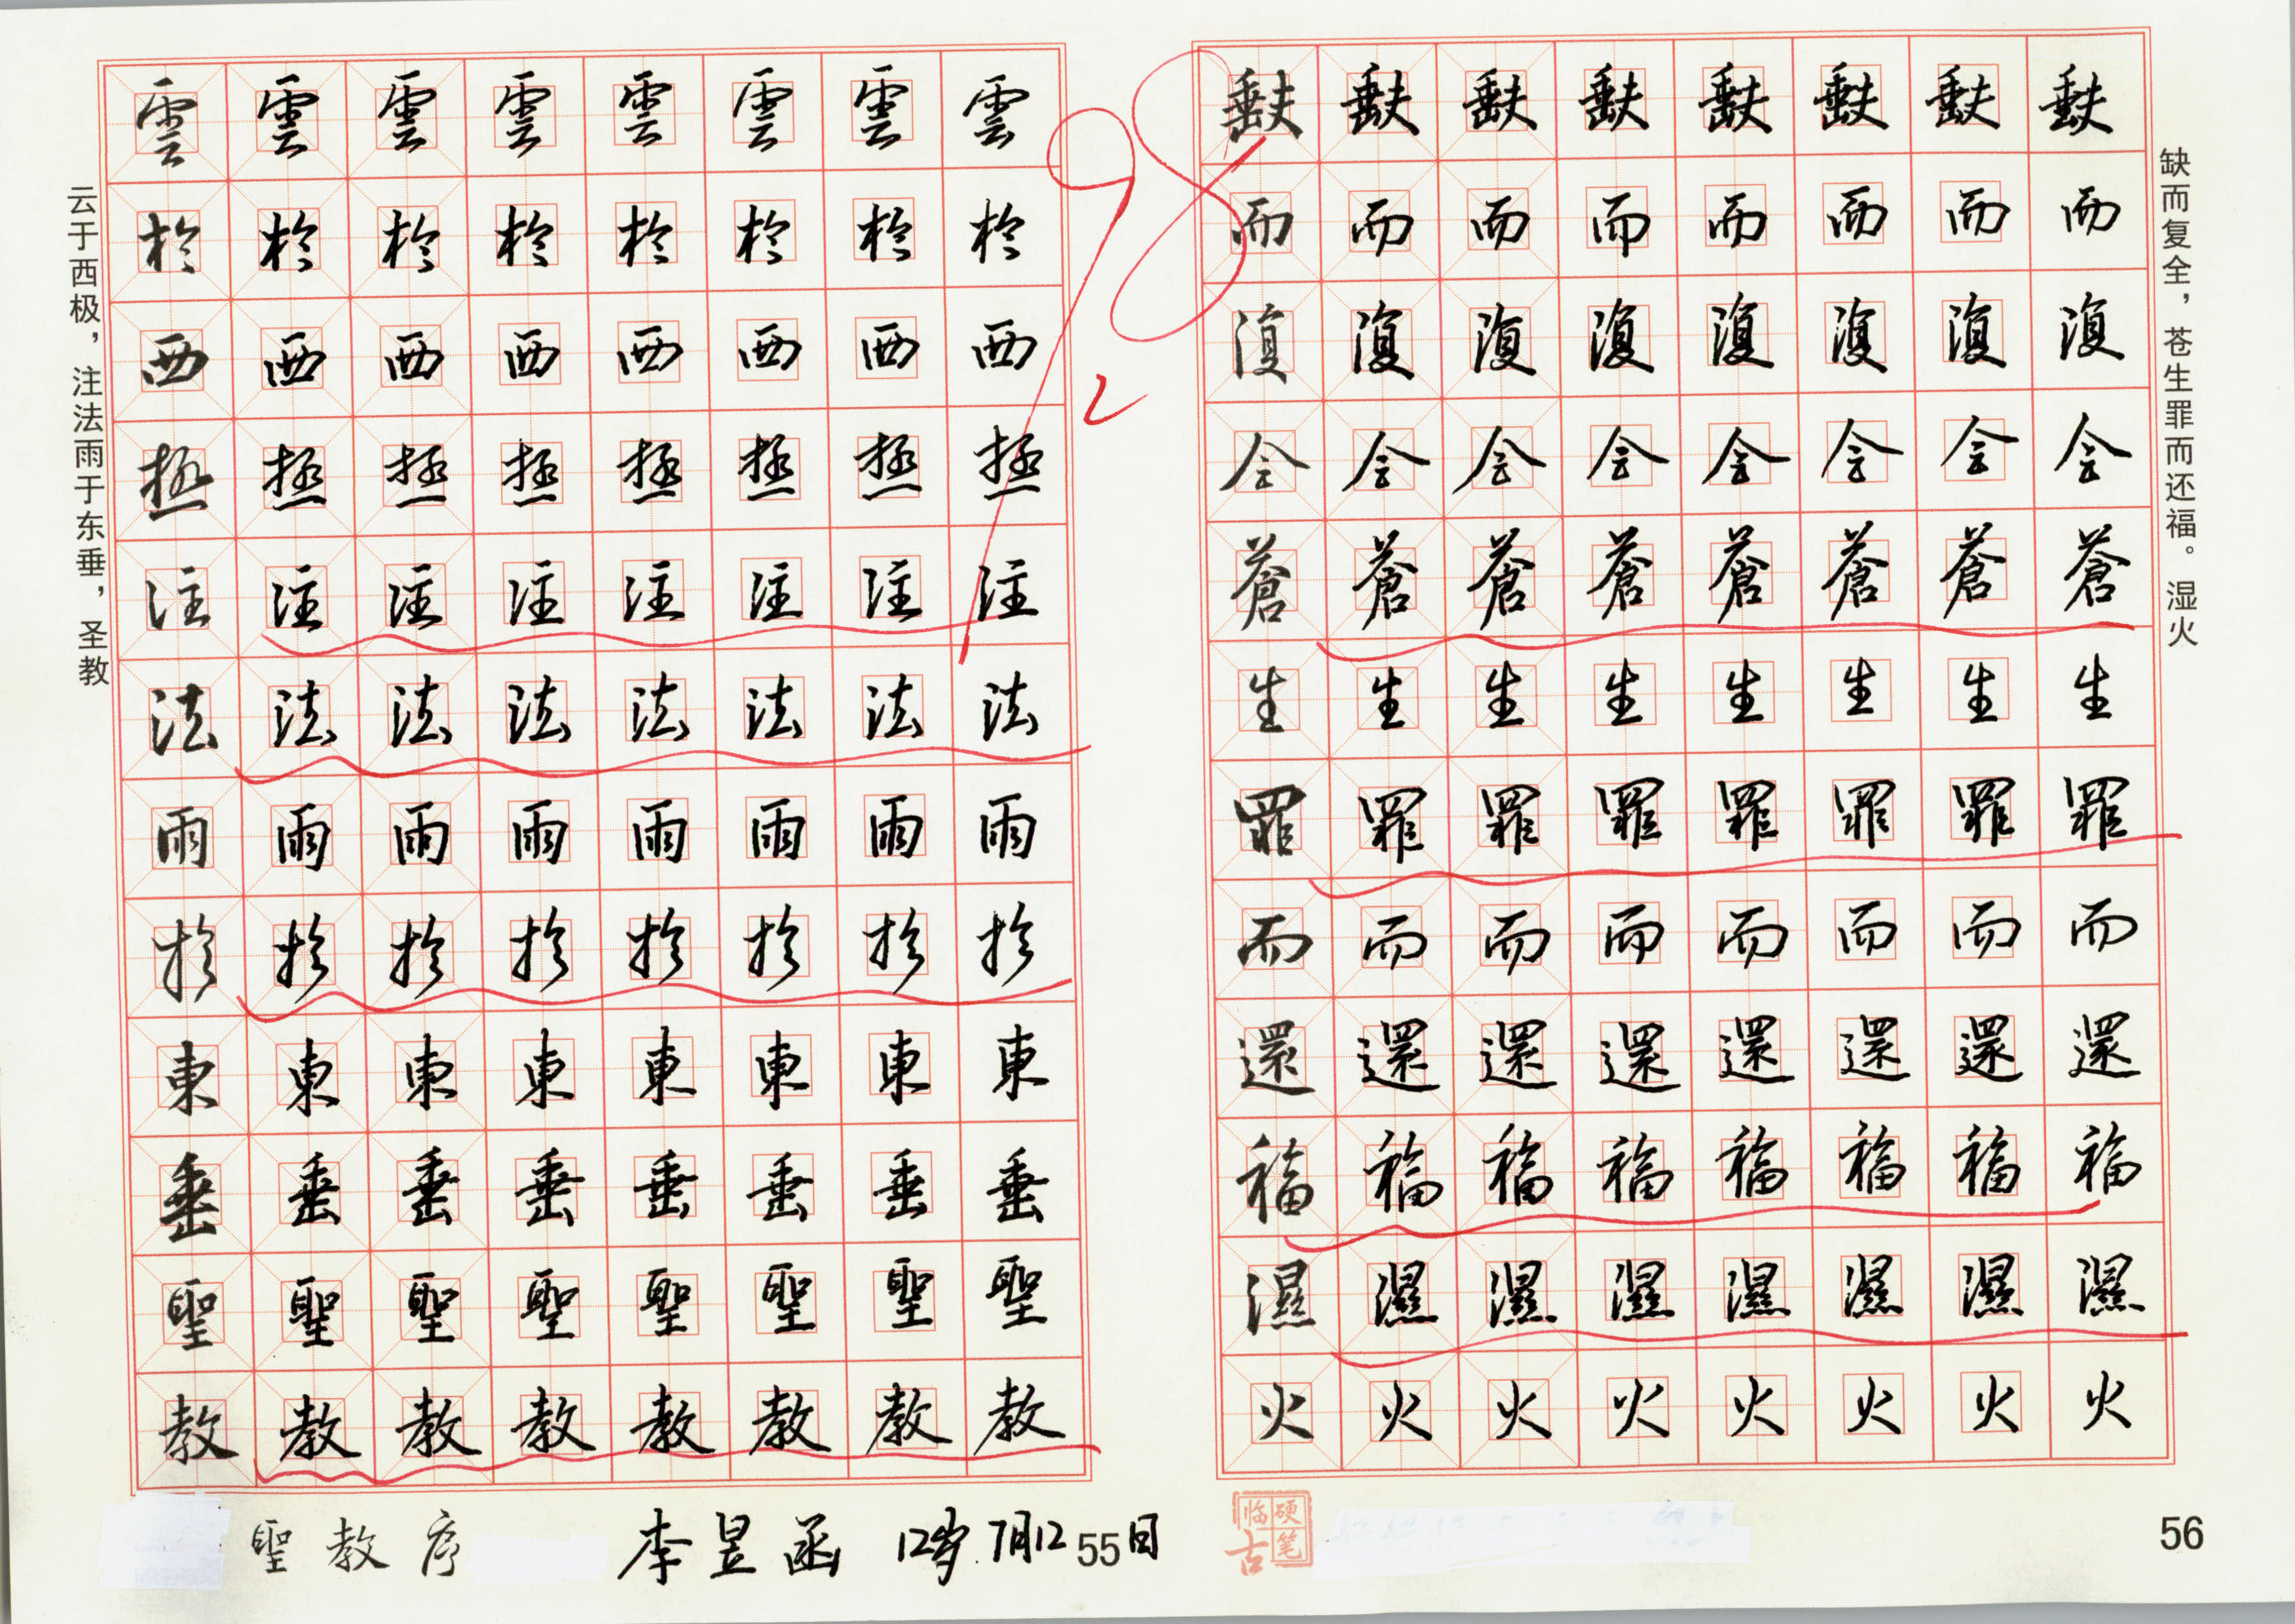 云于西极，注法雨于东垂，圣教
雲雲雲雲雲雲雲雲
於於於於於於於於
西西西西西西西西
極極極極極極極極
注注注注注注注注
法法法法法法法法
雨雨雨雨雨雨雨雨
於於於於於於於於
東東東東東東東東
垂垂垂垂垂垂垂垂
聖聖聖聖聖聖聖聖
教教教教教教教教
98
聖教序
李昱函 12岁.7月12日
55
缺而复全，苍生罪而还福。湿火
缺缺缺缺缺缺缺缺
而而而而而而而而
復復復復復復復復
全全全全全全全全
蒼蒼蒼蒼蒼蒼蒼蒼
生生生生生生生生
罪罪罪罪罪罪罪罪
而而而而而而而而
還還還還還還還還
福福福福福福福福
濕濕濕濕濕濕濕濕
火火火火火火火火
硬笔临古
56